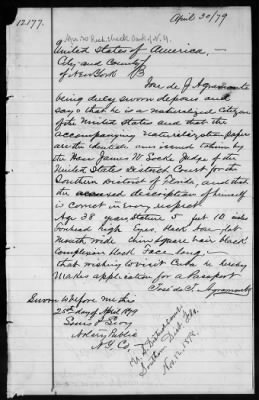 April 30/79
12177.
United States of America,
City and County
of New York } SS
Jose de J. Agramonte
being duly sworn deposes and
says, that he is a naturalized citizen
of the United States and that the
accompanying naturalization paper
are the identical ones issued taken by
the Hon. James W. Locke Judge of the
United States District Court for the
Southern District of Florida, and that
the annexed description of himself
is correct in every respect
Age 38 years Stature 5 feet 10 inches
forehead high Eyes, black nose flat
Mouth wide Chin Square hair black
Complexion black Face long
that wishing to visit Cuba he hereby
Makes application for a Passport
José de J. Agramonte
Sworn to before me this
25th day of April 1879
Louis Levy
Notary Public
N.Y. Co.
U.S. District Court
Southern Dist. Fla.
Nov. 12, 1878.